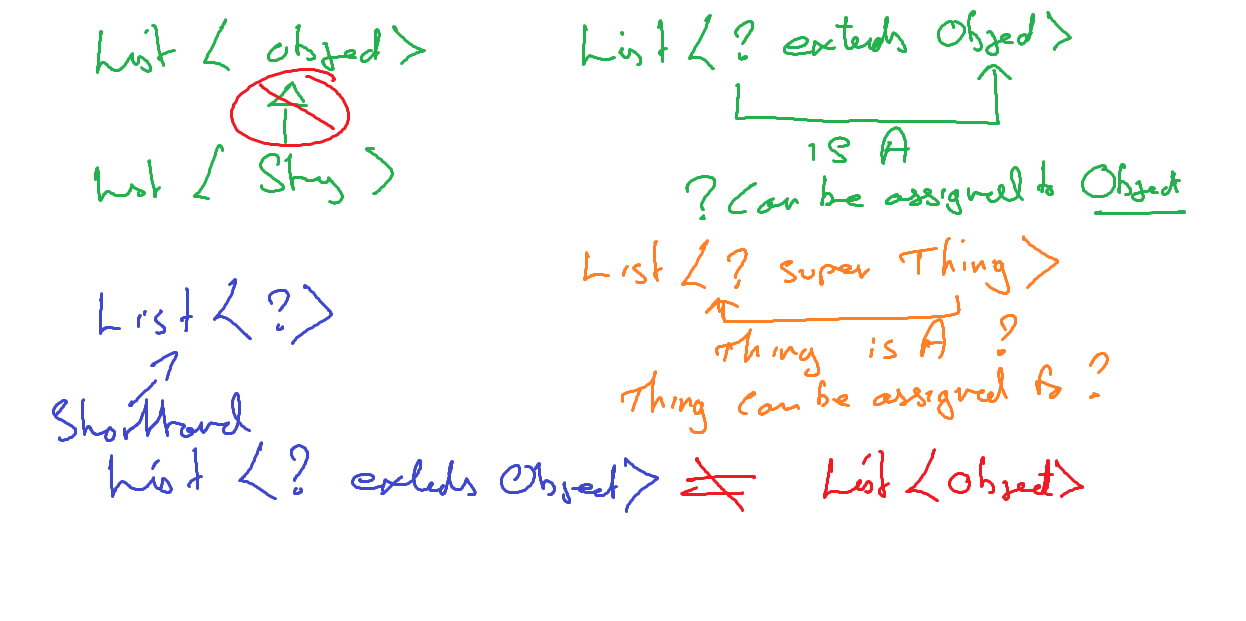 List < Object >
List < ? extends Object >
List < String >
is A
? Can be assigned to Object
List < ? super Thing >
List < ? >
Thing is A ?
Thing can be assigned to ?
Shorthand
List < ? extends Object > ≠ List < Object >